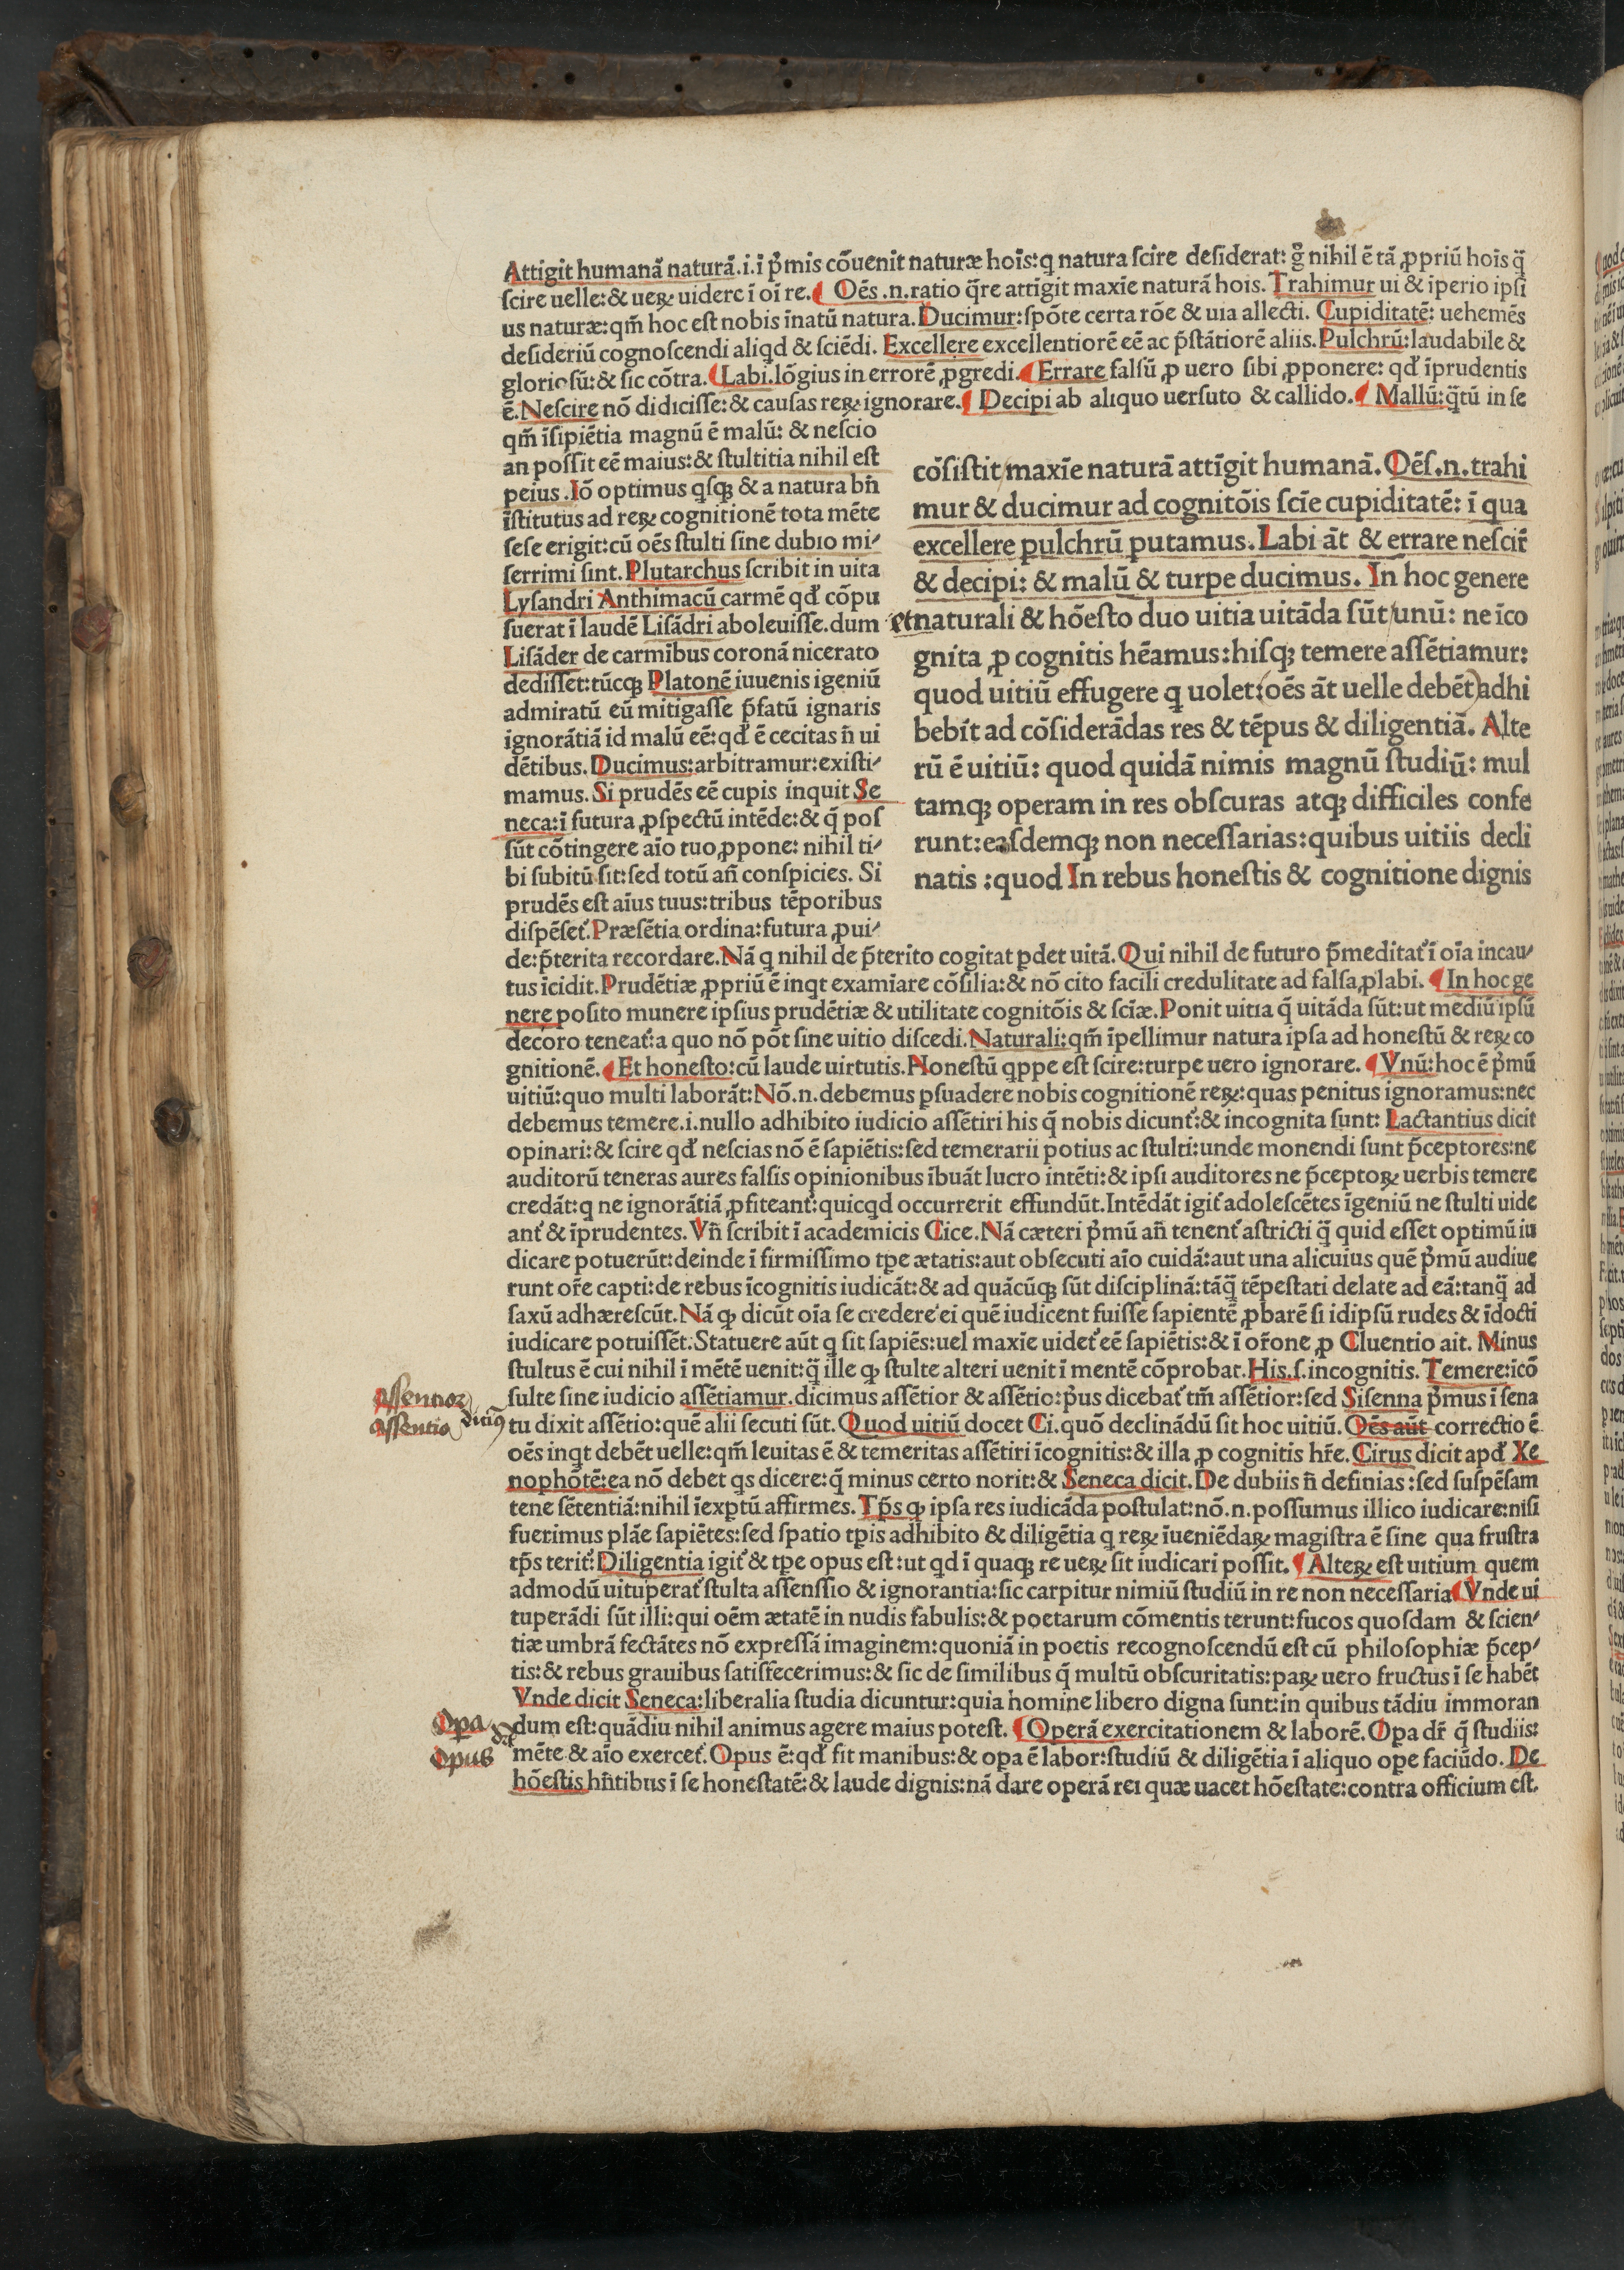 Attigit humanā naturā.i.ī p̄mis cōuenit naturæ hoīs:q natura ſcire deſiderat: g̊ nihil ē tā ꝓpriū hoīs q̄
ſcire uelle:& ueꝝ uidere ī oī re. Oēs .n.ratio q̄re attīgit maxīe naturā hois. Trahimur ui & īperio ipſi
us naturæ:qm̄ hoc eſt nobis īnatū natura. Ducimur:ſpōte certa rōe & uia allecti. Cupiditatē: uehemēs
deſideriū cognoſcendi aliqd & ſciēdi. Excellere excellentiorē eē ac p̄ſtātiorē aliis. Pulchrū:laudabile &
glorioſū:& ſic cōtra. Labi.lōgius in errorē ꝓgredi. Errare falſū ꝓ uero ſibi ꝓponere: qď īprudentis
ē. Neſcire nō didiciſſe:& cauſas reꝝ ignorare. Decipi ab aliquo uerſuto & callido. Mallū:q̄tū in ſe
qm̄ īſipiētia magnū ē malū: & neſcio
an poſſit eē maius:& ſtultitia nihil eſt
peius .Iō optimus qſqꝫ & a natura bn̄
īſtitutus ad reꝝ cognitionē tota mēte
ſeſe erigit:cū oēs ſtulti ſine dubio mi⸗
ſerrimi ſint. Plutarchus ſcribit in uita
Lyſandri Anthimacū carmē qď cōpu
ſuerat ī laudē Liſādri aboleuiſſe.dum
Liſāder de carmībus coronā nicerato
dediſſet:tūcqꝫ Platonē iuuenis igeniū
admiratū eū mitigaſſe p̄fatū ignaris
ignorātiā id malū eē:qď ē cecitas n̄ ui
dētibus. Ducimus:arbitramur:exiſti⸗
mamus. Si prudēs eē cupis inquit Se
neca:ī futura ꝓſpectū intēde:& q̄ poſ
ſūt cōtingere aīo tuo ꝓpone: nihil ti⸗
bi ſubitū ſit:ſed totū an̄ conſpicies. Si
prudēs eſt aīus tuus:tribus tēporibus
diſpēſet᷑. Præſētia ordina:futura ꝓui⸗
cōſiſtit/maxīe naturā attīgit humanā. Oēſ.n.trahi
mur & ducimur ad cognitōis ſcīe cupiditatē: ī qua
excellere pulchrū putamus. Labi āt & errare neſcir̄
& decipi: & malū & turpe ducimus. In hoc genere
et naturali & hōeſto duo uitia uitāda ſūt/unū: ne īco
gnita ꝓ cognitis hēamus:hiſqꝫ temere aſſētiamur:
quod uitiū effugere q uolet:(oēs āt uelle debēt)adhi
bebit ad cōſiderādas res & tēpus & diligentiā. Alte
rū ē uitiū: quod quidā nimis magnū ſtudiū: mul
tamqꝫ operam in res obſcuras atqꝫ difficiles confe
runt:eaſdemqꝫ non neceſſarias:quibus uitiis decli
natis :quod In rebus honeſtis & cognitione dignis
de:p̄terita recordare. Nā q nihil de p̄terito cogitat ꝑdet uitā. Qui nihil de futuro p̄meditat᷑ ī oīa incau⸗
tus īcidit. Prudētiæ ꝓpriū ē inqt examīare cōſilia:& nō cito facili credulitate ad falſa ꝓlabi. In hoc ge
nere poſito munere ipſius prudētiæ & utilitate cognitōis & ſcīæ. Ponit uitia q̄ uitāda ſūt:ut mediū ipſū
decoro teneat᷑:a quo nō pōt ſine uitio diſcedi. Naturali:qm̄ īpellimur natura ipſa ad honeſtū & reꝝ co
gnitionē. Et honeſto:cū laude uirtutis. Honeſtū qppe eſt ſcire:turpe uero ignorare. Vnū:hoc ē p̄mū
uitiū:quo multi laborāt:Nō.n.debemus ꝑſuadere nobis cognitionē reꝝ:quas penitus ignoramus:nec
debemus temere.i.nullo adhibito iudicio aſſētiri his q̄ nobis dicunt᷑:& incognita ſunt: Lactantius dicit
opinari:& ſcire qď neſcias nō ē ſapiētis:ſed temerarii potius ac ſtulti:unde monendi ſunt p̄ceptores:ne
auditorū teneras aures falſis opinionibus ībuāt lucro intēti:& ipſi auditores ne p̄ceptoꝝ uerbis temere
credāt:q ne ignorātiā ꝓfiteant᷑:quicqd occurrerit effundūt.Intēdāt igit᷑ adoleſcētes īgeniū ne ſtulti uide
ant᷑ & īprudentes. Vn̄ ſcribit ī academicis Cice. Nā cæteri p̄mū an̄ tenent᷑ aſtricti q̄ quid eſſet optimū iu
dicare potuerūt:deinde ī firmiſſimo tꝑe ætatis:aut obſecuti aīo cuidā:aut una alicuius quē p̄mū audiue
runt or̄e capti:de rebus īcognitis iudicāt:& ad quācūqꝫ ſūt diſciplinā:tāq̄ tēpeſtati delate ad eā:tanq̄ ad
ſaxū adhæreſcūt. Nā ꝙ dicūt oīa ſe credere ei quē iudicent fuiſſe ſapientē ꝓbarē ſi idipſū rudes & īdocti
iudicare potuiſſēt:Statuere aūt q ſit ſapiēs:uel maxīe uidet᷑ eē ſapiētis:& ī or̄one ꝓ Cluentio ait. Minus
ſtultus ē cui nihil ī mētē uenit:q̄ ille ꝙ ſtulte alteri uenit ī mentē cōprobat. His.ſ.incognitis. Temere:īcō
ſulte ſine iudicio aſſētiamur.dicimus aſſētior & aſſētio:p̄us dicebat᷑ tm̄ aſſētior:ſed Siſenna p̄mus ī ſena
Aſſentior
Aſſentio dicimꝰ
tu dixit aſſētio:quē alii ſecuti ſūt. Quod uitiū docet Ci.quō declinādū ſit hoc uitiū. Oēs aūt correctio ē
oēs inqt debēt uelle:qm̄ leuitas ē & temeritas aſſētiri īcognitis:& illa ꝓ cognitis hr̄e. Cirus dicit apď Xe
nophōtē:ea nō debet qs dicere:q̄ minus certo norit:& Seneca dicit. De dubiis n̄ definias :ſed ſuſpēſam
tene ſētentiā:nihil īexꝑtū affirmes. Tp̄s ꝙ ipſa res iudicāda poſtulat:nō.n.poſſumus illico iudicare:niſi
fuerimus plāe ſapiētes:ſed ſpatio tꝑis adhibito & diligētia q reꝝ īueniēdaꝝ magiſtra ē ſine qua fruſtra
tp̄s terit᷑:Diligentia igit᷑ & tꝑe opus eſt:ut qd ī quaqꝫ re ueꝝ ſit iudicari poſſit. Alteꝝ eſt uitium quem
admodū uituperat᷑ ſtulta aſſenſſio & ignorantia:ſic carpitur nimiū ſtudiū in re non neceſſaria Vnde ui
tuperādi ſūt illi:qui oēm ætatē in nudis fabulis:& poetarum cōmentis terunt:fucos quoſdam & ſcien⸗
tiæ umbrā fectātes nō expreſſā imaginem:quoniā in poetis recognoſcendū eſt cū philoſophiæ p̄cep⸗
tis:& rebus grauibus ſatiſfecerimus:& ſic de ſimilibus q̄ multū obſcuritatis:paꝝ uero fructus ī ſe habēt
Vnde dicit Seneca:liberalia ſtudia dicuntur:quia homine libero digna ſunt:in quibus tādiu immoran
dum eſt:quādiu nihil animus agere maius poteſt. Operā exercitationem & laborē. Oꝑa dr̄ q̄ ſtudiis:
Oꝑa
Opus
mēte & aīo exercet᷑. Opus ē:qď fit manibus:& oꝑa ē labor:ſtudiū & diligētia ī aliquo oꝑe faciūdo. De
hōeſtis hn̄tibus ī ſe honeſtatē:& laude dignis:nā dare operā rei quæ uacet hōeſtate:contra officium eſt.